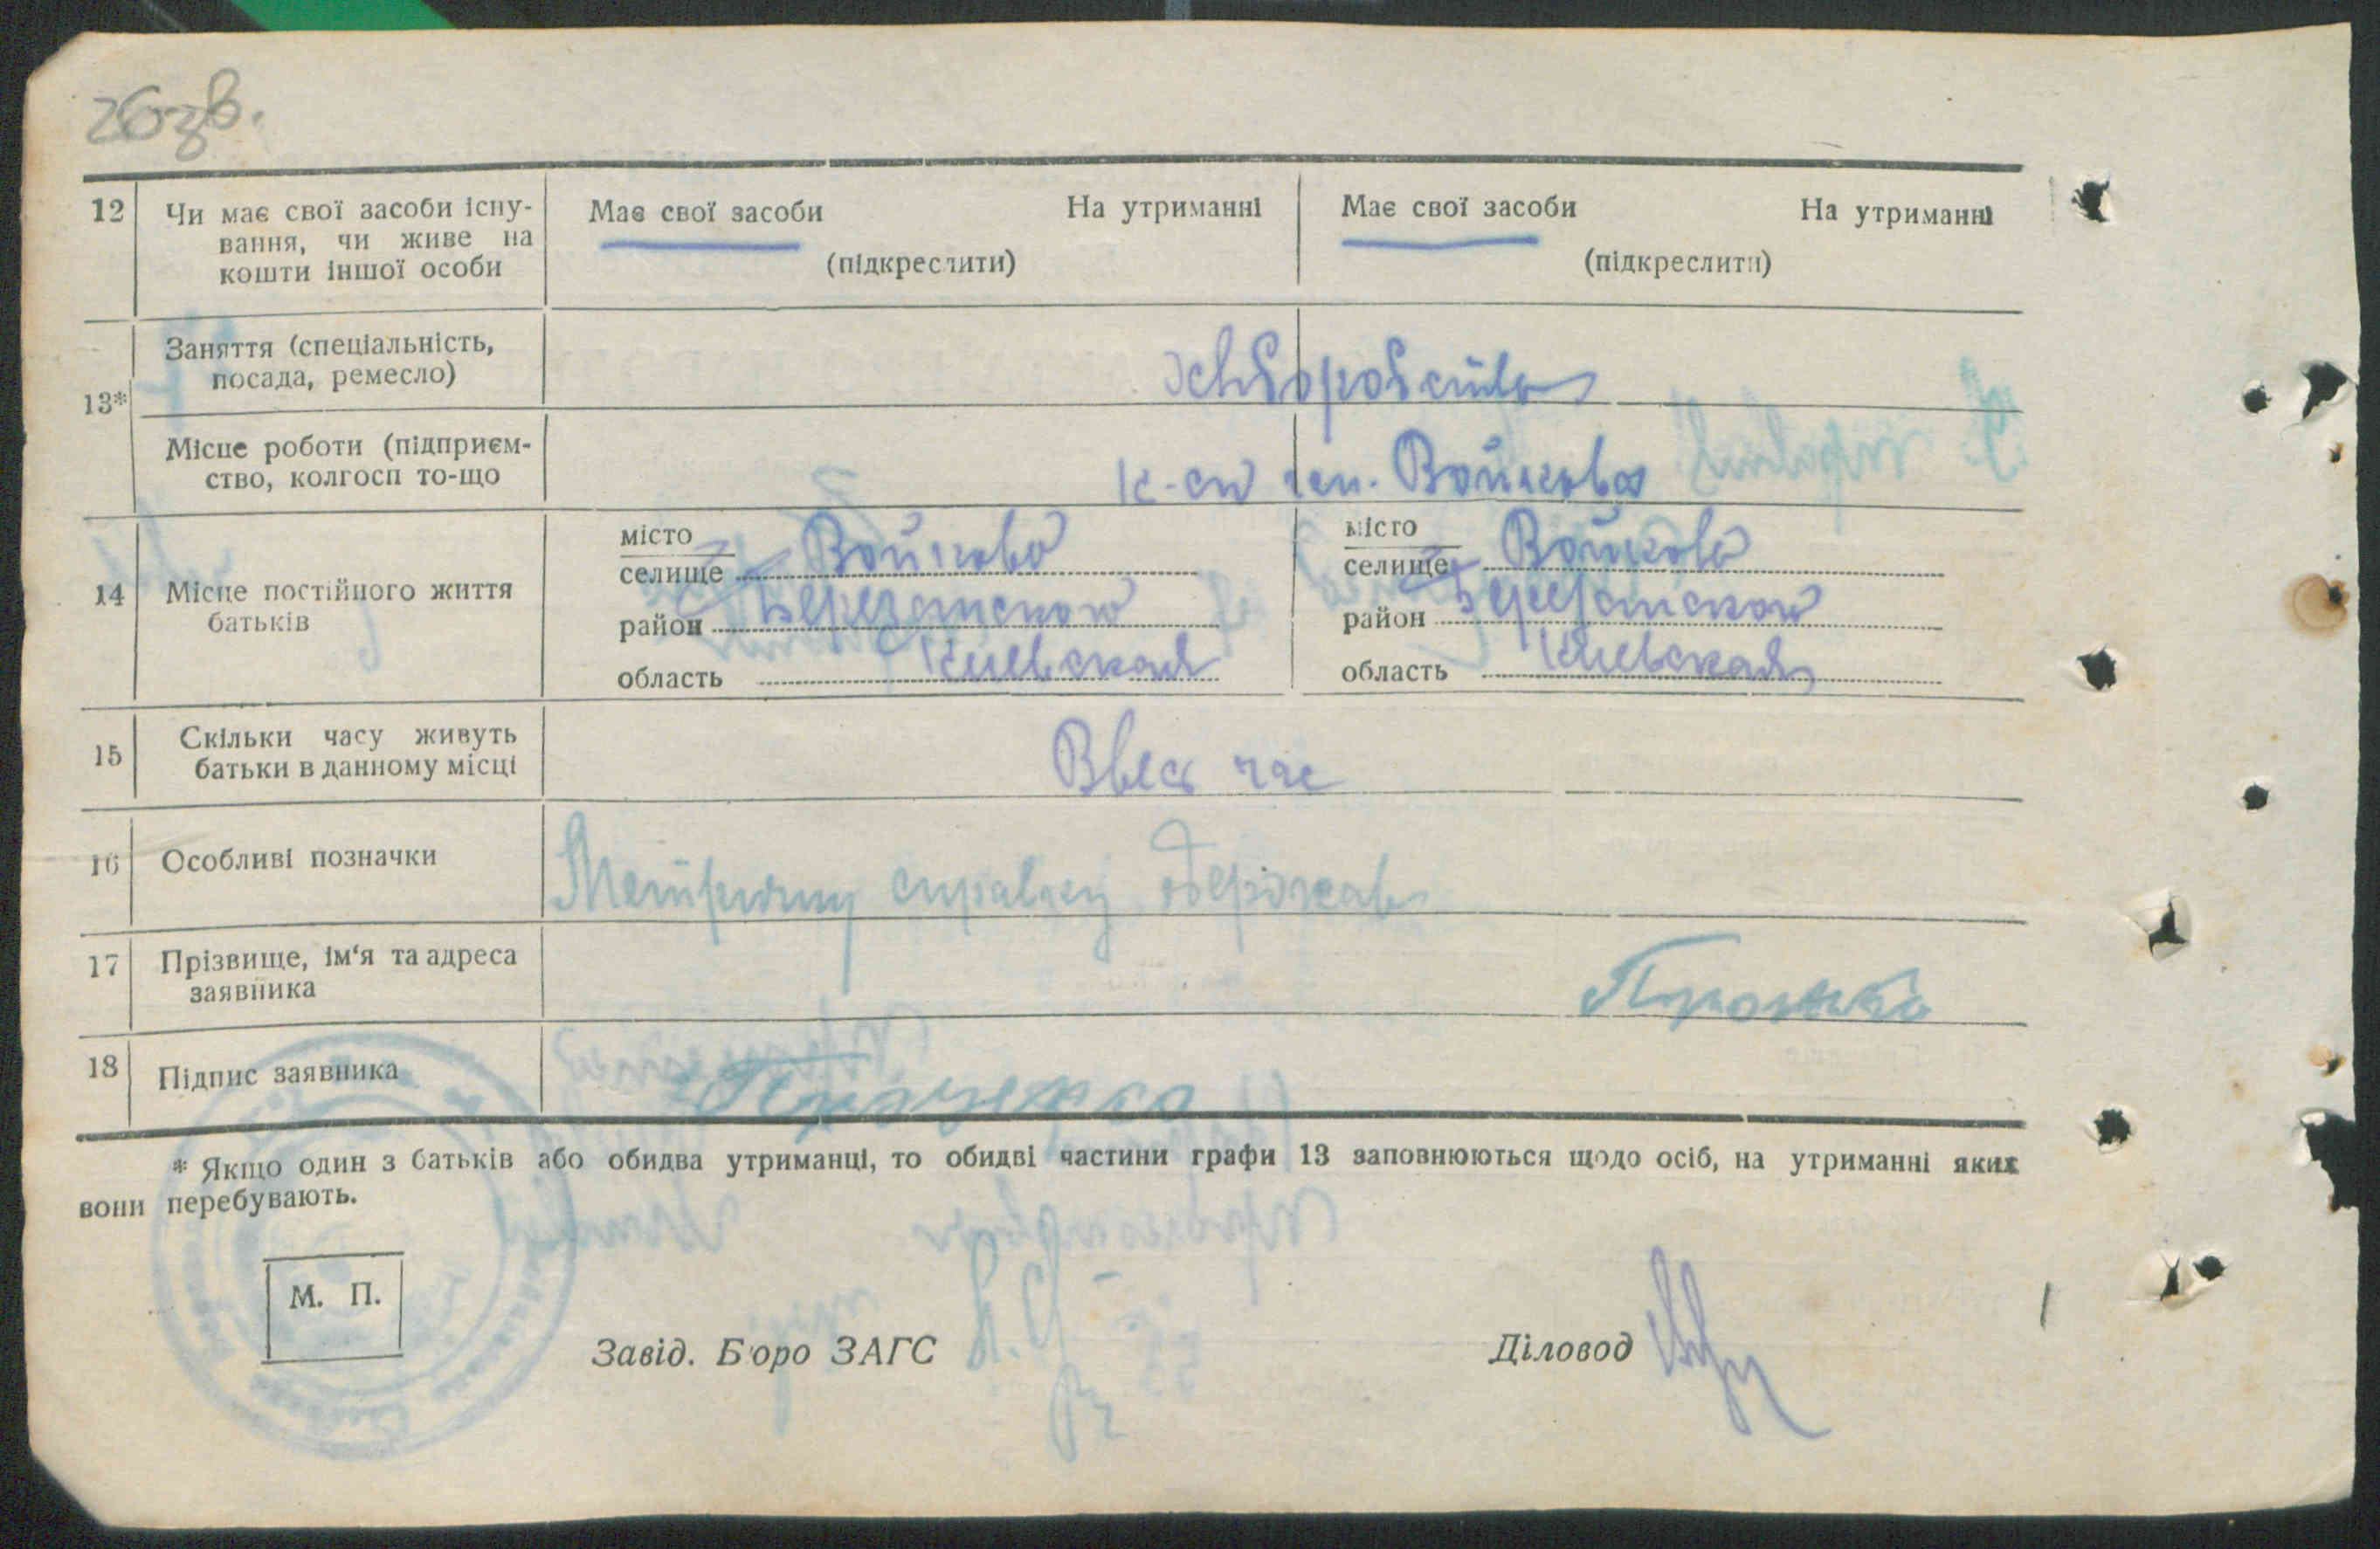 26 зв.
12 Чи має свої засоби існу-
вання, чи живе на
кошти іншої особи
Має свої засоби На утриманні
(підкреслити)
Має свої засоби На утриманні
(підкреслити)
13*
Заняття (спеціальність,
посада, ремесло)
Хлiборобство
Місце роботи (підприєм-
ство, колгосп то-що
к-сп iм. Войкова
14 Місце постійного життя
батьків
місто
селище Войково
район Березанском
область Киевская
місто
селище Войково
район Березанском
область Киевская
15 Скільки часу живуть
батьки в данному місці
Ввесь час
16 Особливі позначки
Метричну справку одержав
17 Прізвище, ім'я та адреса
заявника
18 Підпис заявника
* Якщо один з батьків або обидва утриманці, то обидві частини графи 13 заповнюються щодо осіб, на утриманні яких
вони перебувають.
М. П.
Завід. Бюро ЗАГС
Діловод